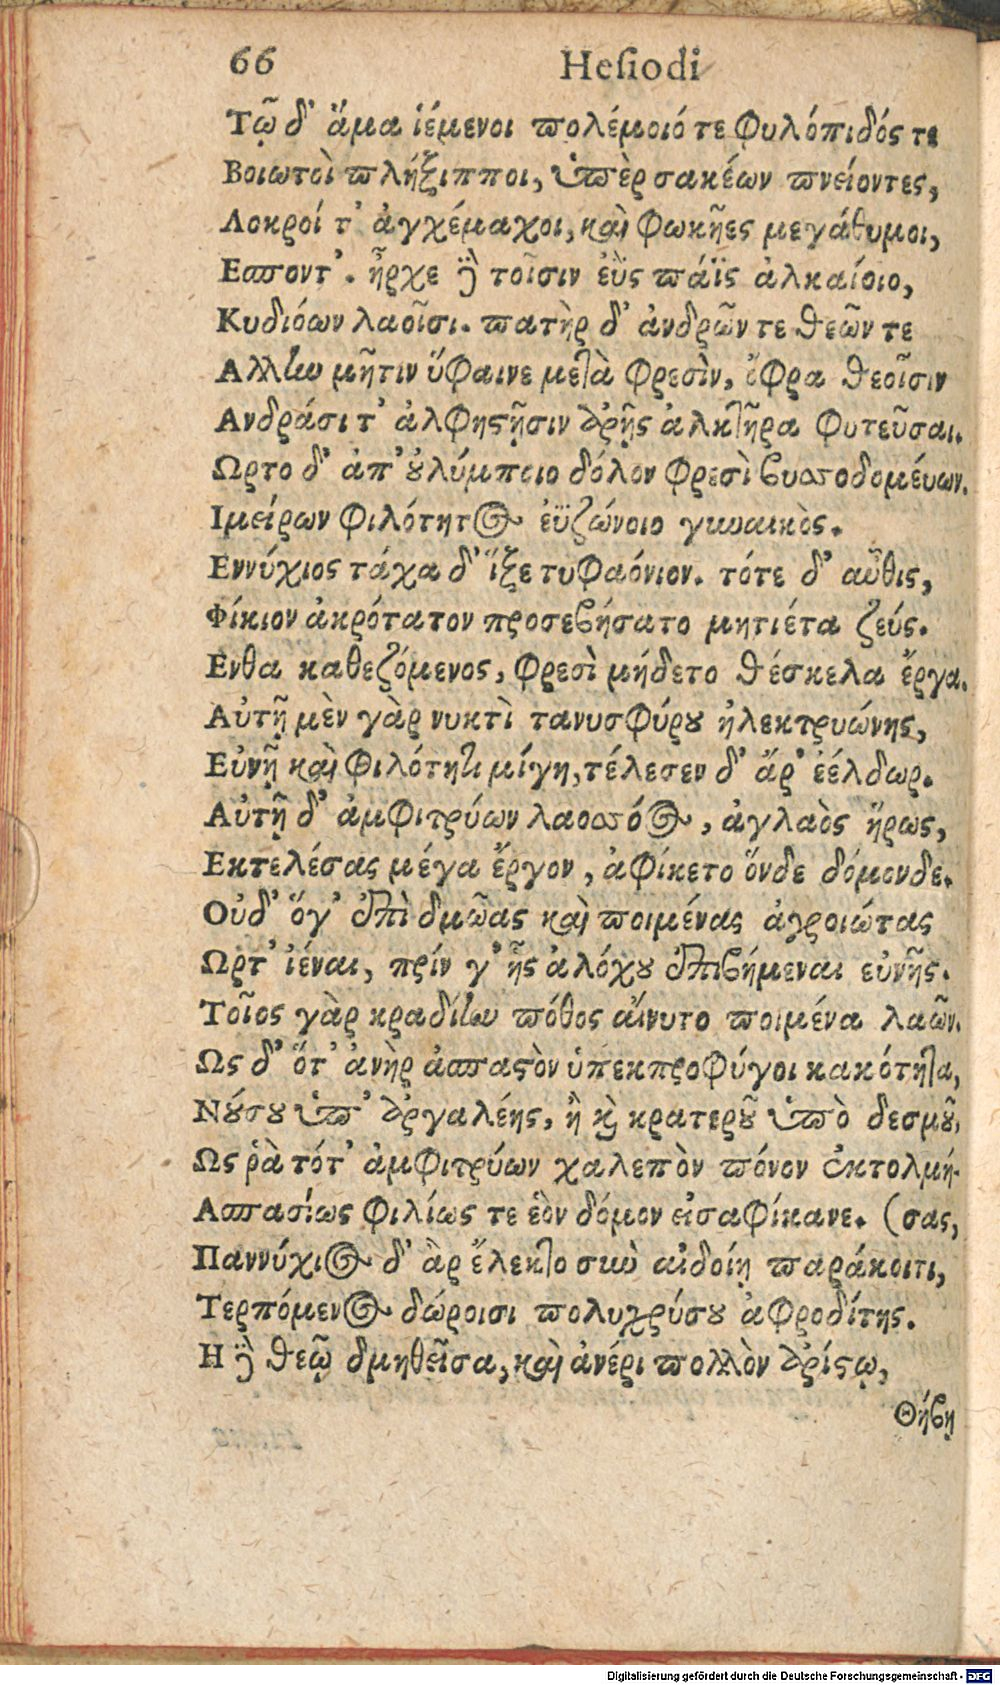 66 Hesiodi
Τῷ δ' ἅμα ἱέμενοι πολέμοιό τε φυλόπιδός τε
Βοιωτοὶ πλήξιπποι, ὑπὲρ σακέων πνείοντες,
Λοκροί τ' ἀγχέμαχοι, καὶ φωκῆες μεγάθυμοι,
Εσποντ'. ἦρχε δὲ τοῖσιν ἐῢς πάϊς ἀλκαίοιο,
Κυδιόων λαοῖσι. πατὴρ δ' ἀνδρῶν τε θεῶν τε
Αλλην μῆτιν ὕφαινε μετὰ φρεσὶν, ὄφρα θεοῖσιν
Ανδράσι τ' ἀλφηστῇσιν ἀρῆς ἀλκτῆρα φυτεῦσαι.
Ωρτο δ' ἀπ' οὐλύμποιο δόλον φρεσὶ βυσσοδομέυων.
Ιμείρων φιλότητος ἐϋζώνοιο γυναικὸς.
Εννύχιος τάχα δ' ἷξε τυφαόνιον. τότε δ' αὖθις,
Φίκιον ἀκρότατον προσεβήσατο μητιέτα ζεύς.
Ενθα καθεζόμενος, φρεσὶ μήδετο θέσκελα ἔργα.
Αὐτῇ μὲν γὰρ νυκτὶ τανυσφύρου ἠλεκτρυώνης,
Εὐνῇ καὶ φιλότητι μίγη, τέλεσεν δ' ἄρ' ἐέλδωρ.
Αὐτῇ δ' ἀμφιτρύων λαοσσόος, ἀγλαὸς ἥρως,
Εκτελέσας μέγα ἔργον, ἀφίκετο ὅνδε δόμονδε.
Οὐδ' ὅγ' ἐπὶ δμῶας καὶ ποιμένας ἀγροιώτας
Ωρτ' ἰέναι, πρίν γ' ἧς ἀλόχου ἐπιβήμεναι εὐνῆς.
Τοῖος γὰρ κραδίην πόθος αἴνυτο ποιμένα λαῶν.
Ως δ' ὅτ' ἀνὴρ ἀσπαστὸν ὑπεκπροφύγοι κακότητα,
Νούσου ὑπ' ἀργαλέης, ἢ καὶ κρατεροῦ ὑπὸ δεσμοῦ,
Ως ῥὰ τότ' ἀμφιτρύων χαλεπὸν πόνον ἐκτολμή-
Ασπασίως φιλίως τε ἑὸν δόμον εἰσαφίκανε. (σας,
Παννύχιος δ' ἂρ ἔλεκτο σὺν αἰδοίῃ παράκοιτι,
Τερπόμενος δώροισι πολυχρύσου ἀφροδίτης.
Η δὲ θεῷ δμηθεῖσα, καὶ ἀνέρι πολλὸν ἀρίστῳ,
Θήβῃ
Digitalisierung gefördert durch die Deutsche Forschungsgemeinschaft - DFG